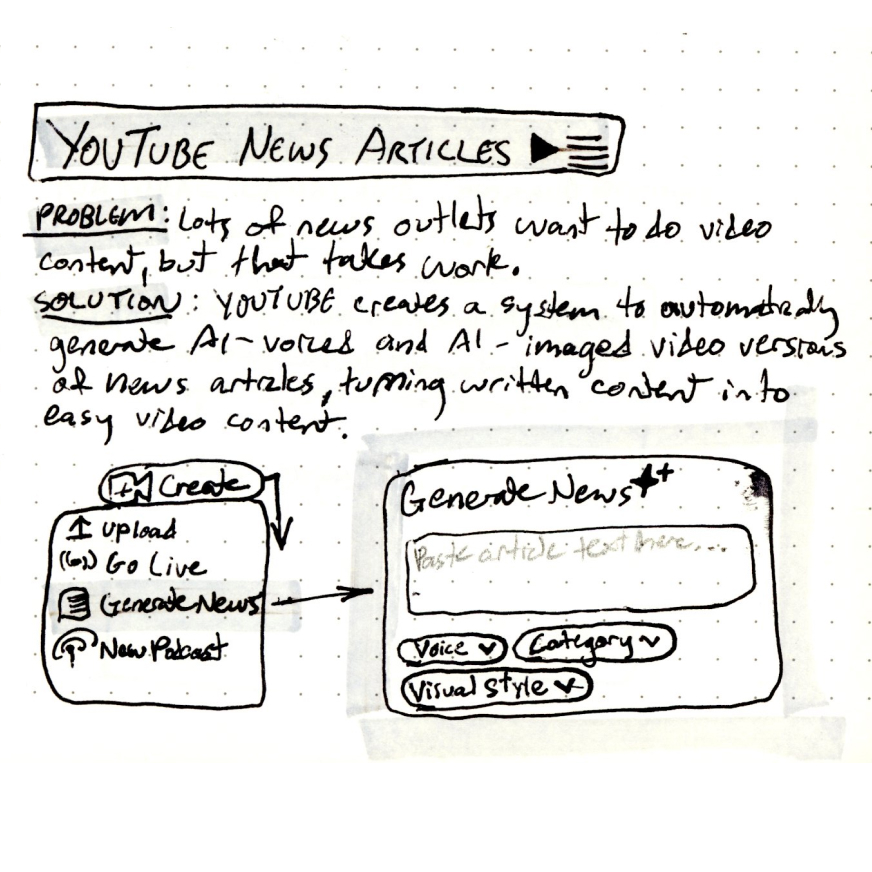 YOUTUBE NEWS ARTICLES
PROBLEM: Lots of news outlets want to do video
content, but that takes work.
SOLUTION: YOUTUBE creates a system to automatically
generate AI-voiced and AI-imaged video versions
of news articles, turning written content into
easy video content.
Create
Upload
Go Live
Generate News
New Podcast
Generate News
Paste article text here...
Voice
Category
Visual Style